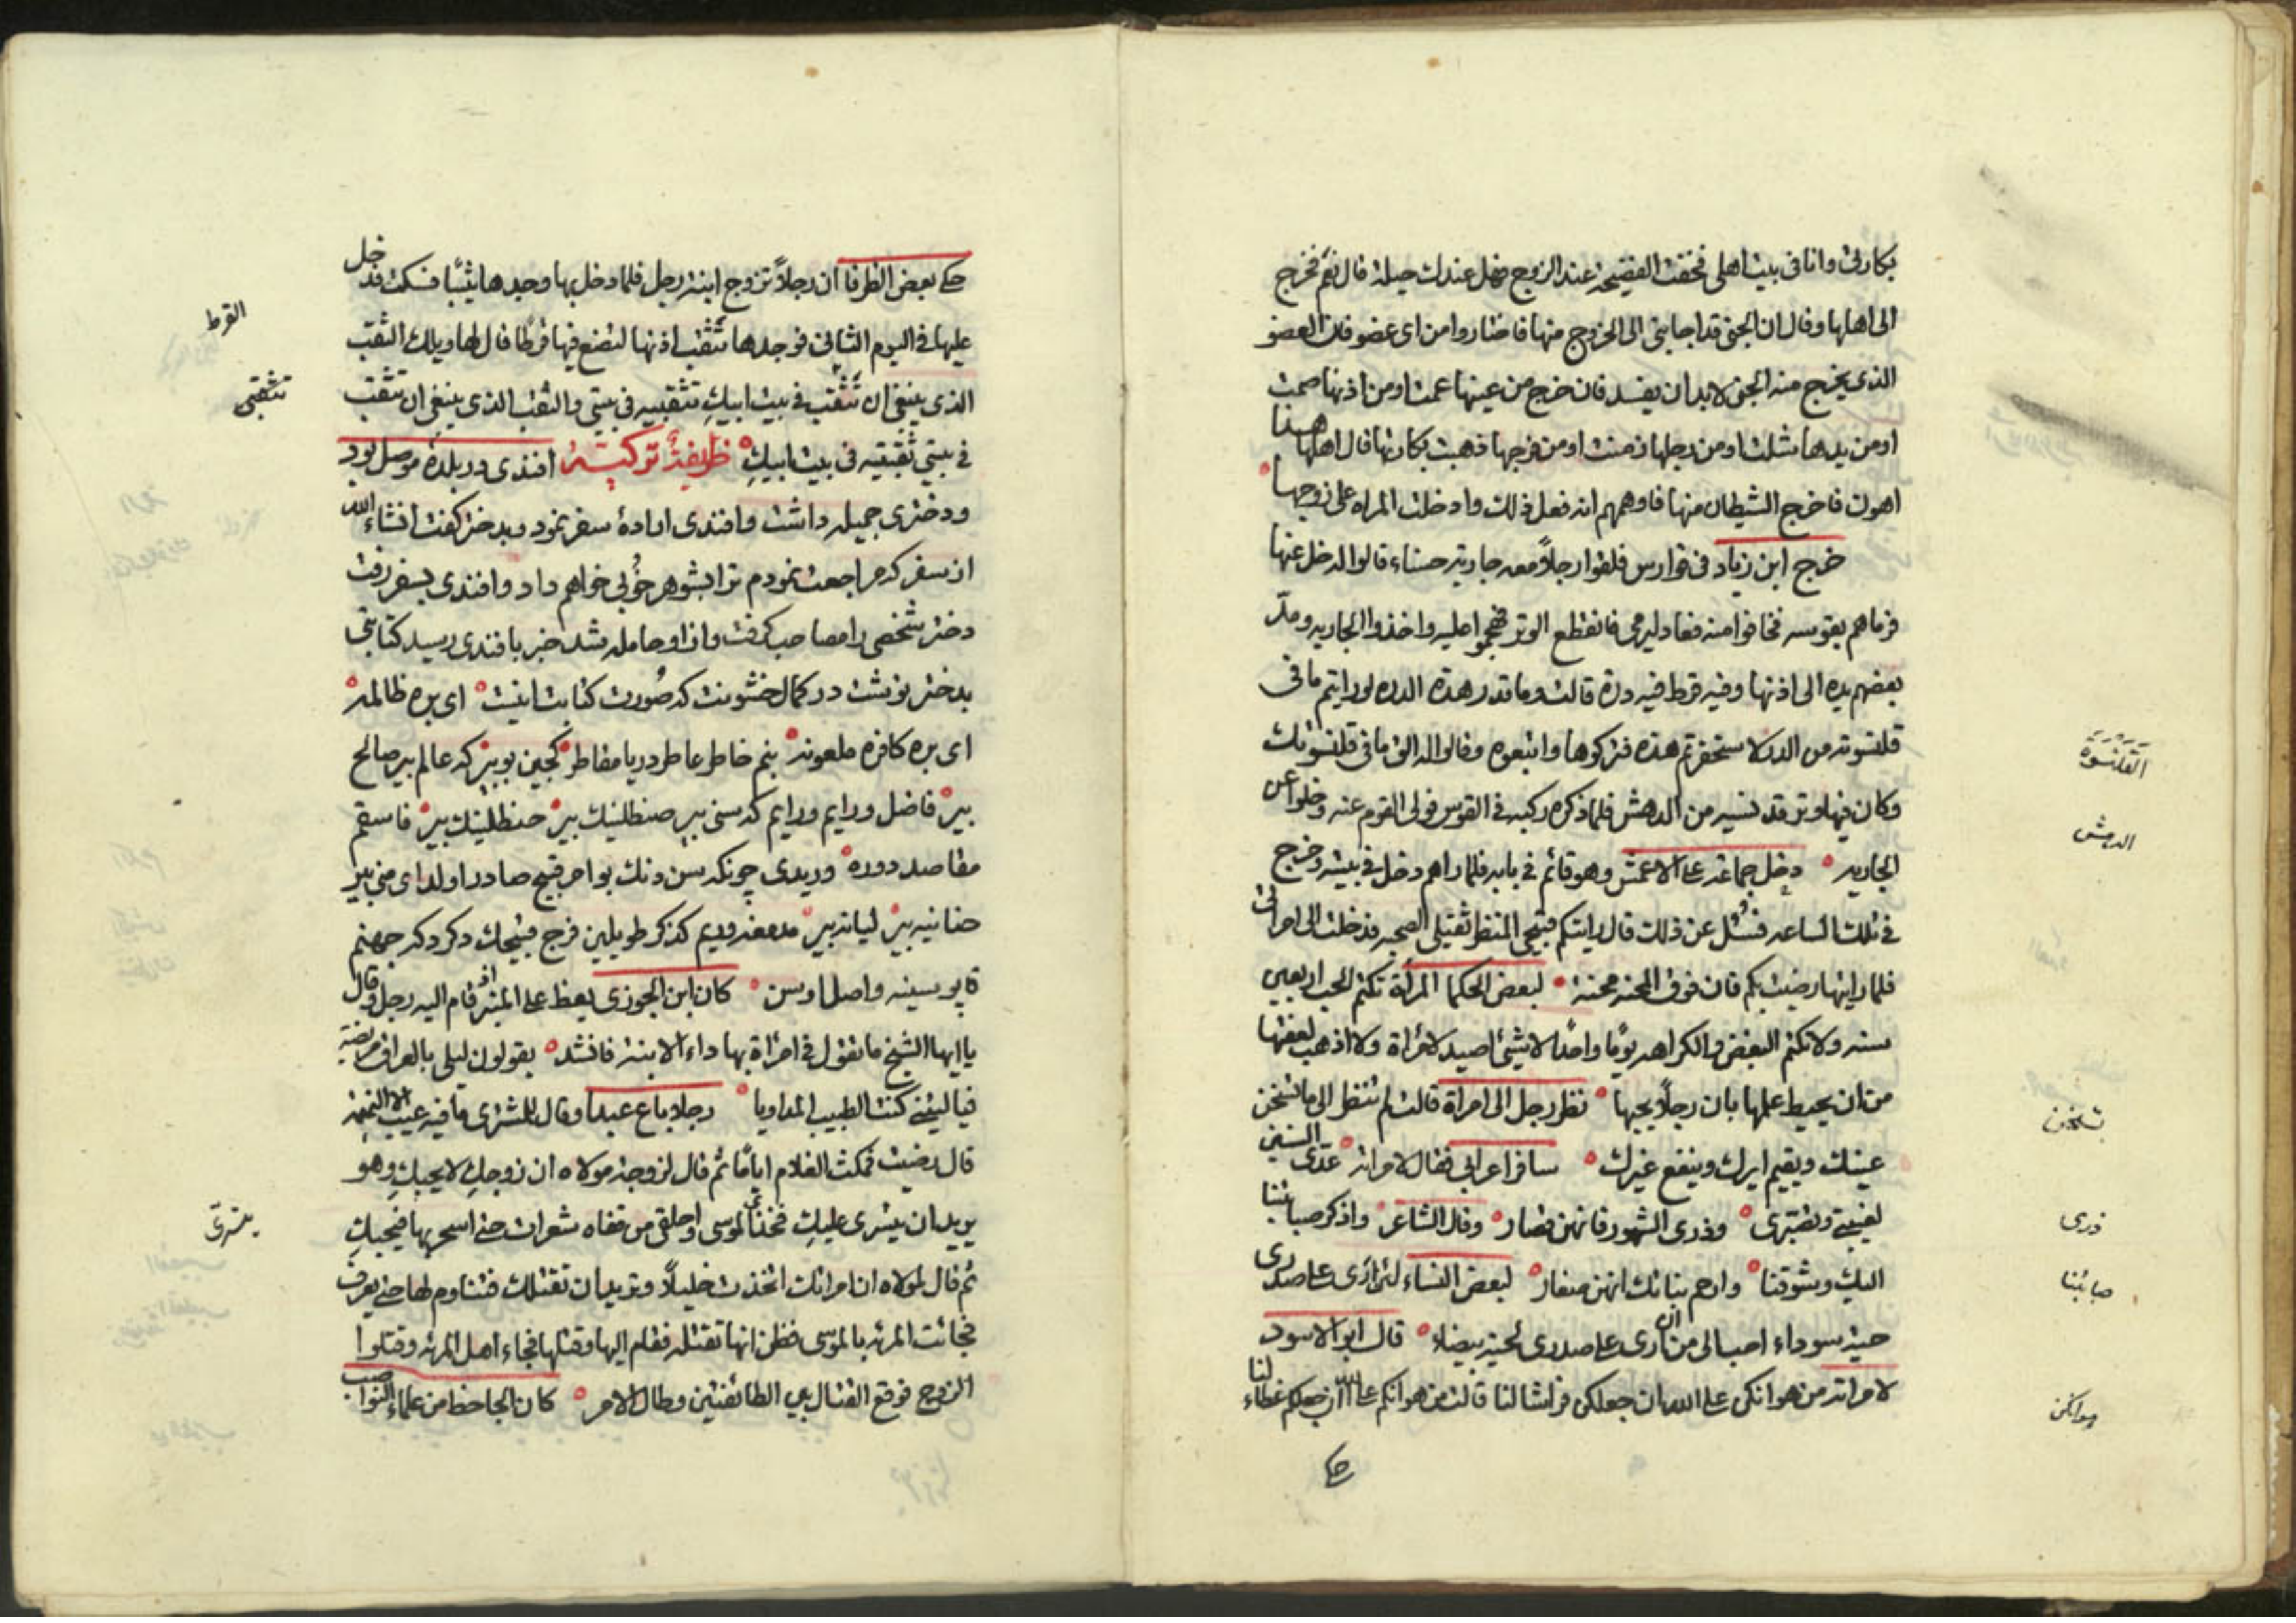 بکارتی وانا فی بیت اهلی فخفت الفضیحة عند الزوج فهل عندک حیلة قال نعم فخرج
الی اهلها وقال ان الجنی قد اجابنی الی الخروج منها فاختاروا من ای عضو فان العضو
الذی یخرج منه الجنی لا بد ان یفسد فان خرج من عینها عمت او من اذنها صمت
او من یدها شلت او من رجلها زمنت او من فرجها ذهبت بکارتها قال اهلها هذا
اهون فاخرج الشیطان منها فاوهمهم انه فعل ذلک وادخلت المراه علی زوجها
خرج ابن زیاد فی فوارس فلقوا رجلاً معه جاریة حسناء قالوا له خل عنها
فرماهم بقوسه فخافوا منه فعاد لیرمی فانقطع الوتر فهجموا علیه واخذوا الجاریه ومدّ
بعضهم یده الی اذنها وفیه قرط فیه درة قالت وما قدر هذه الدره لو رایتم ما فی
قلنسوته من الدر لاستحقرتم هذه فترکوها واتبعوه وقالوا له الق ما فی قلنسوتک
وکان فیها وتر قد نسیه من الدهش فلما ذکره رکبه فی القوس فولی القوم عنه وخلوا عن
الجاریه دخل جماعة علی الاعمش وهو قائم فی بابه فلما راهم دخل فی بیته وخرج
فی تلک الساعه فسُئل عن ذلک قال رایتکم قبیحی المنظر ثقیلی الصحبه فدخلت الی امراتی
فلما رایتها رضیت بکم فان فوق المحنه محنة لبعض الحکما المرأة تکتم الحب اربعین
سنه ولا تکتم البغض والکراهه یومًا واحدًا لا شیئ اصید لامرأة ولا اذهب لعفتها
من ان یحیط علمها بان رجلاً یحبها نظر رجل الی امراة قالت لم تنظر الی ما تسخن
عینک ویقیم ایرک وینفع غیرک سافر اعرابی فقال لامراته عدّی السنین
لغیبتی وتصبّری وذری الشهور فانهن قصار وقال الشاعر واذکر صبابتنا
الیک وشوقنا وارحم بناتک انهن صغار لبعض النساء لئن اری علی صدری
حیة سوداء احب الی من ان اری علی صدری لحیة بیضاء قال ابو الاسود
لامراته من هوانکن علی الله ان جعلکن فراشا لنا قالت من هوانکم علی الله ان جعلکم غطاء لنا
حکی
القلنسوة
الدهش
تسخن
ذری
صبابتنا
هوانکن
حکی بعض الظرفا ان رجلاً تزوج ابنة رجل فلما دخل بها وجدها ثیّبًا فسکت فدخل
علیها فی الیوم الثانی فوجدها تثقب اذنها لتضع فیها قرطًا قال لها ویلک الثقب
الذی ینبغی ان تثقب فی بیت ابیکِ تثقبیه فی بیتی والثقب الذی ینبغی ان تثقب
فی بیتی ثقبتیه فی بیت ابیکِ ظریفهٔ ترکیته افندی در بلدهٔ موصل بود
ودختری جمیله داشت وافندی ارادهٔ سفر نمود وبدختر گفت انشاء الله
از سفر که مراجعت نمودم ترا بشوهر خُوبی خواهم داد وافندی بسفر رفت
دختر شخصی را مصاحب گرفت واز او حامله شد خبر بافندی رسید کتابتی
بدختر نوشت در کمال خشونت که صُورت کتابت اینست ای بره ظالمه
ای بره کافره ملعونه بنم خاطر عاطر دریا مقاطر کجین بویبر که عالم بیر صالح
بیر فاضل ورایم ورایم که سنی بیر صنطلینک بیر حنظلینک بیر فاسقم
مقاصد دوره وریدی چونکه سن دنک بو امر قبیح صادر اولدی ای منی بیر
خنانیه بیر لیانه بیر که ذکر طویلین فرج قبیحک دکر دکر جهنم
قاپوسینه واصل اوسن کان ابن الجوزی یعظ علی المنبر اذ قام الیه رجل وقال
یا ایها الشیخ ما تقول فی امرأة بها داء الابنة فانشد یقولون لیلی بالعراق مریضة
فیالیتنی کنت الطبیب المداویا رجلا باع عبدا وقال للمشتری ما فیه عیب الا النمیمة
قال رضیت فمکث الغلام ایامًا ثم قال لزوجة مولاه ان زوجکِ لا یحبکِ وهو
یرید ان یتسری علیکِ فخذی الموسی واحلقی من قفاه شعرات حتی اسحر بها فیحبکِ
ثم قال لمولاه ان امراتک اتخذت خلیلاً وترید ان تقتلک فتناوم لها حتی یعرف
فجائت المرئه بالموسی فظن انها تقتله فقام الیها وقتلها فجاء اهل المرئه وقتلوا
الزوج فوقع القتال بین الطائفتین وطال الامر کان الجاحظ من علماء النواصب
القرط
تثقبی
یتسری